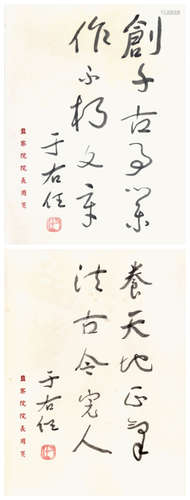 創千古事業
作不朽文章
于右任
監察院院長用箋
養天地正氣
法古今完人
于右任
監察院院長用箋